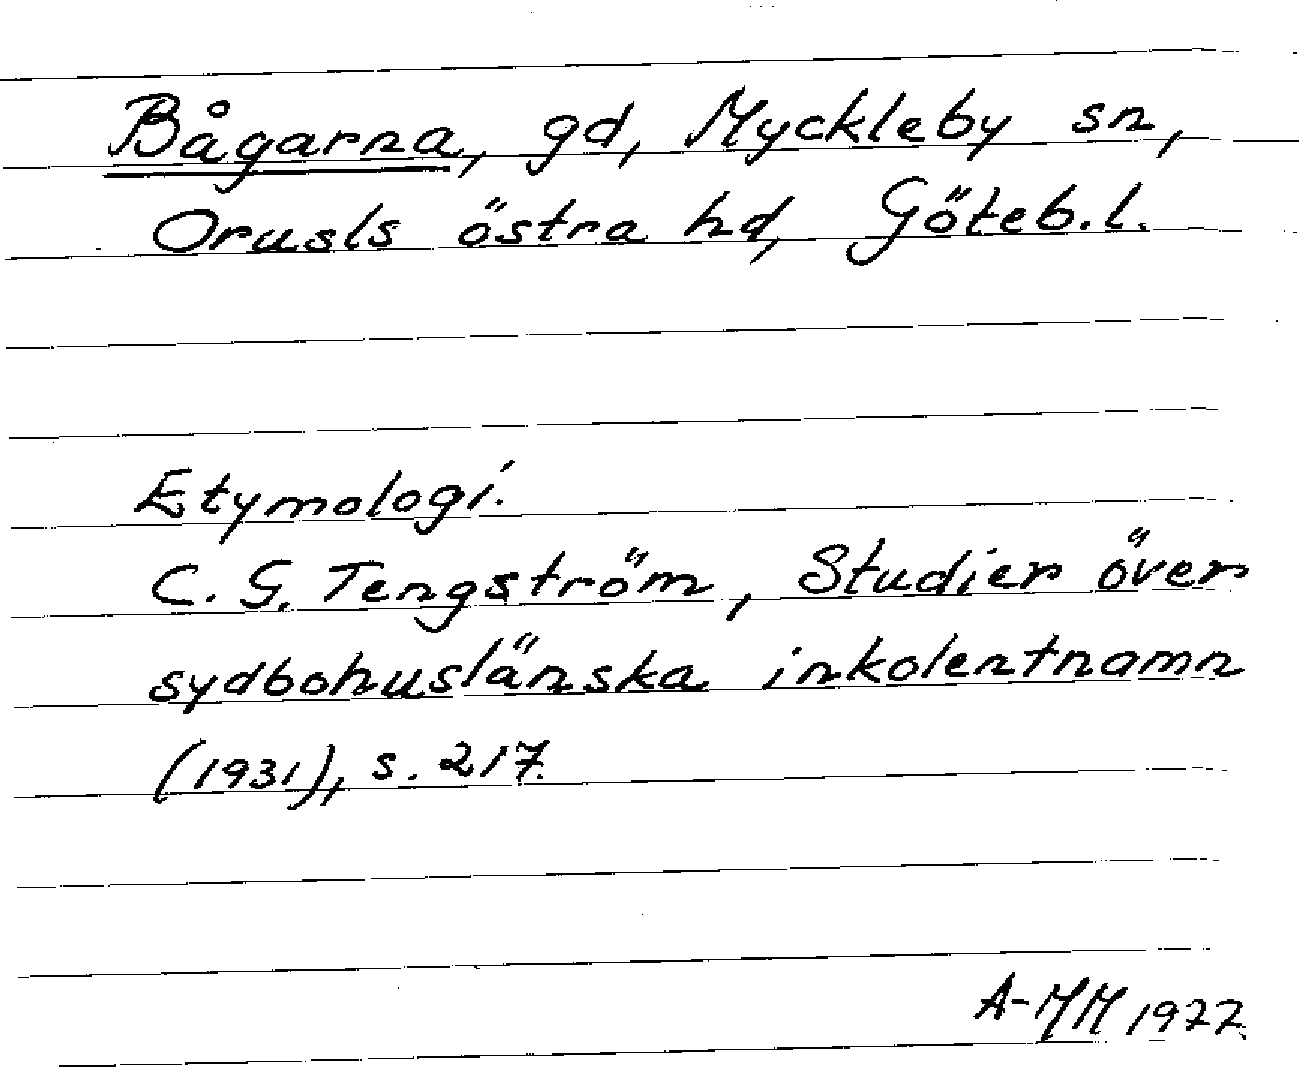 Bågarna, gd, Myckleby sn,
Orusls östra hd, Göteb.l.
Etymologi.
C. G. Tengström, Studier över
sydbohuslänska inkolentnamn
(1931), s. 217.
A-MM 1977.